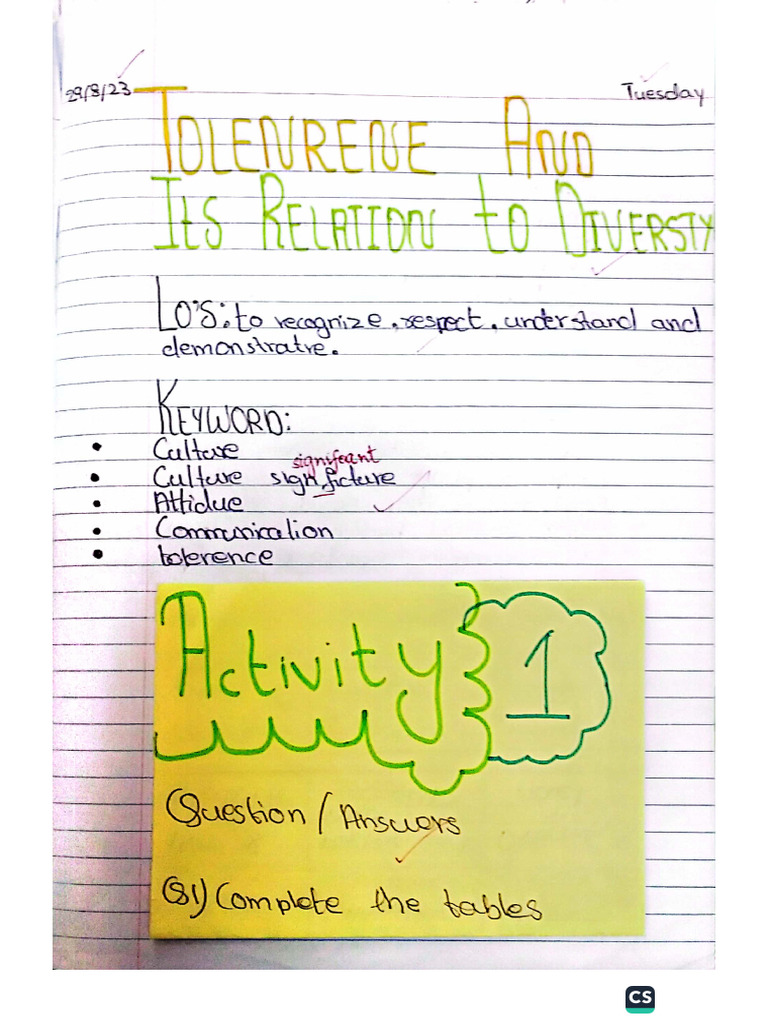 29/8/23 Tuesday
TOLENRENE AND
ITS RELATION to DIVERSTY
LO'S: to recognize, respect, understand and
demonstratre.
KEYWORD:
• Culture
significant
• Culture significture
• Attidue
• Communication
• tolerence
Activity 1
Question / Answers
Q1) Complete the tables
CS